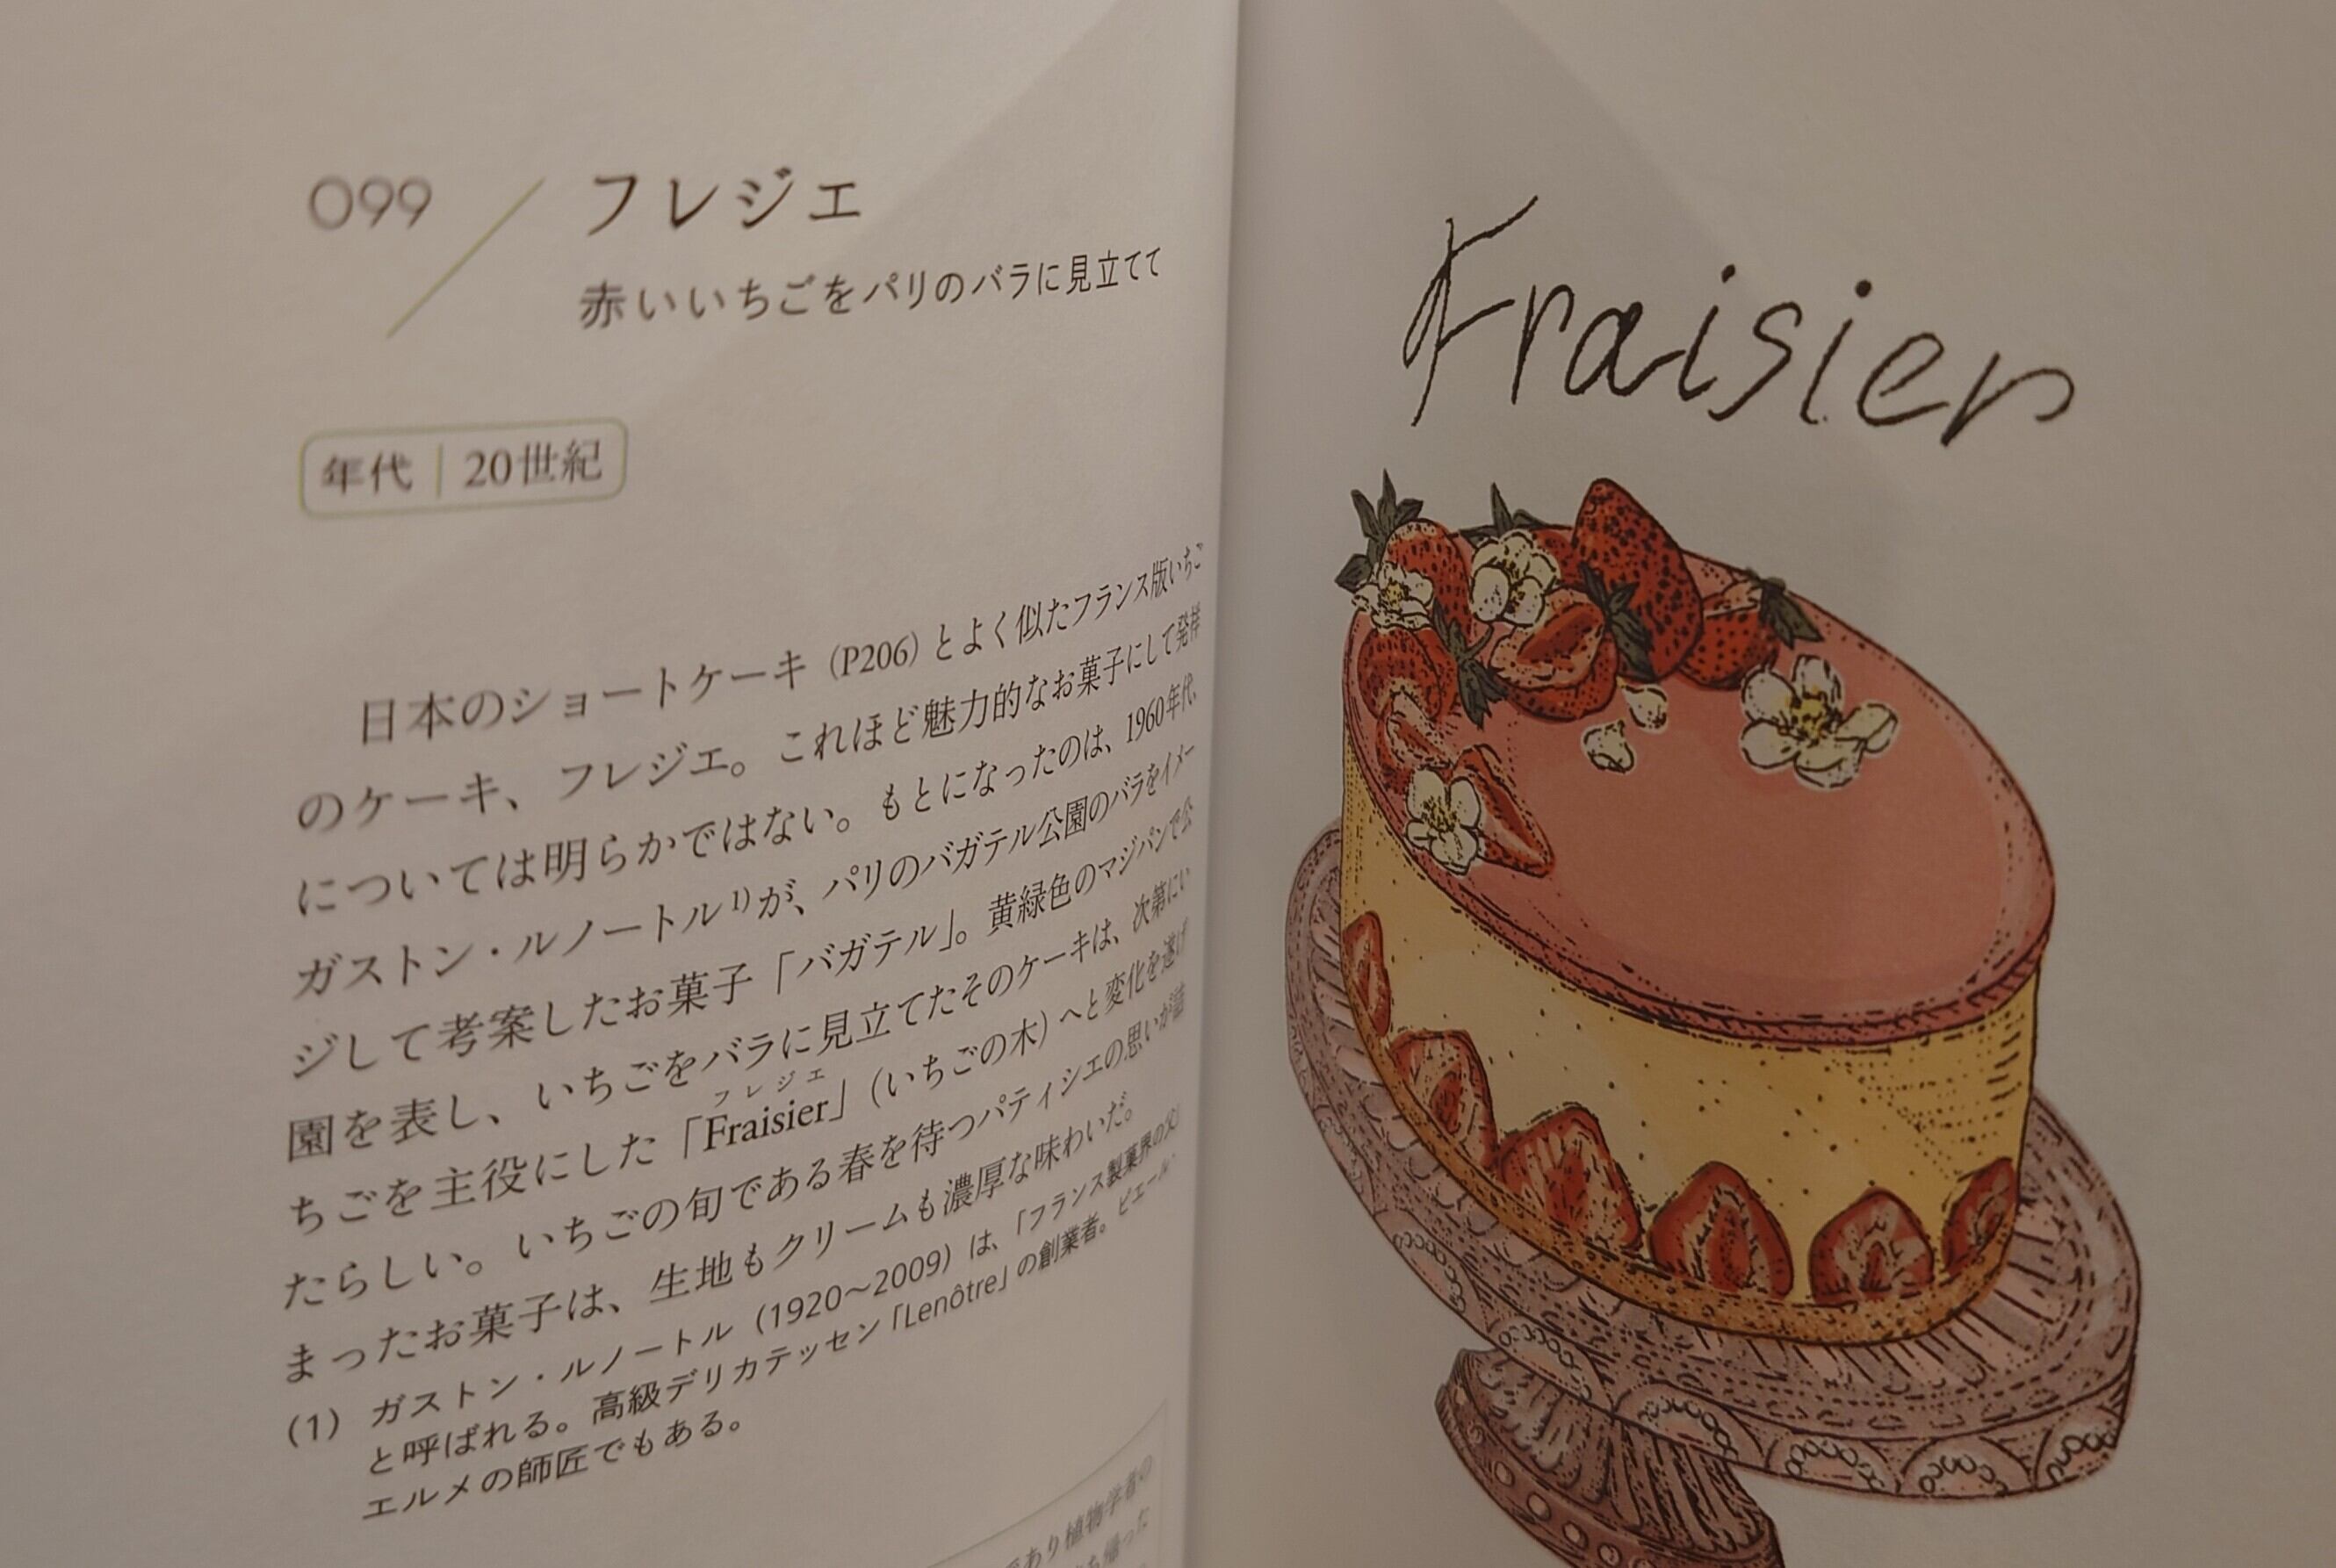 099
フレジエ
赤いいちごをパリのバラに見立てて
年代 | 20世紀
日本のショートケーキ（P206）とよく似たフランス版いちご
のケーキ、フレジエ。これほど魅力的なお菓子にして発祥
については明らかではない。もとになったのは、1960年代、
ガストン・ルノートル1)が、パリのバガテル公園のバラをイメー
ジして考案したお菓子「バガテル」。黄緑色のマジパンで公
園を表し、いちごをバラに見立てたそのケーキは、次第にい
フレジエ
ちごを主役にした「Fraisier」（いちごの木）へと変化を遂げ
たらしい。いちごの旬である春を待つパティシエの思いが詰
まったお菓子は、生地もクリームも濃厚な味わいだ。
(1) ガストン・ルノートル（1920〜2009）は、「フランス製菓界の父」
と呼ばれる。高級デリカテッセン「Lenôtre」の創業者。ピエール・
エルメの師匠でもある。
であり植物学者の
帰った
Fraisier